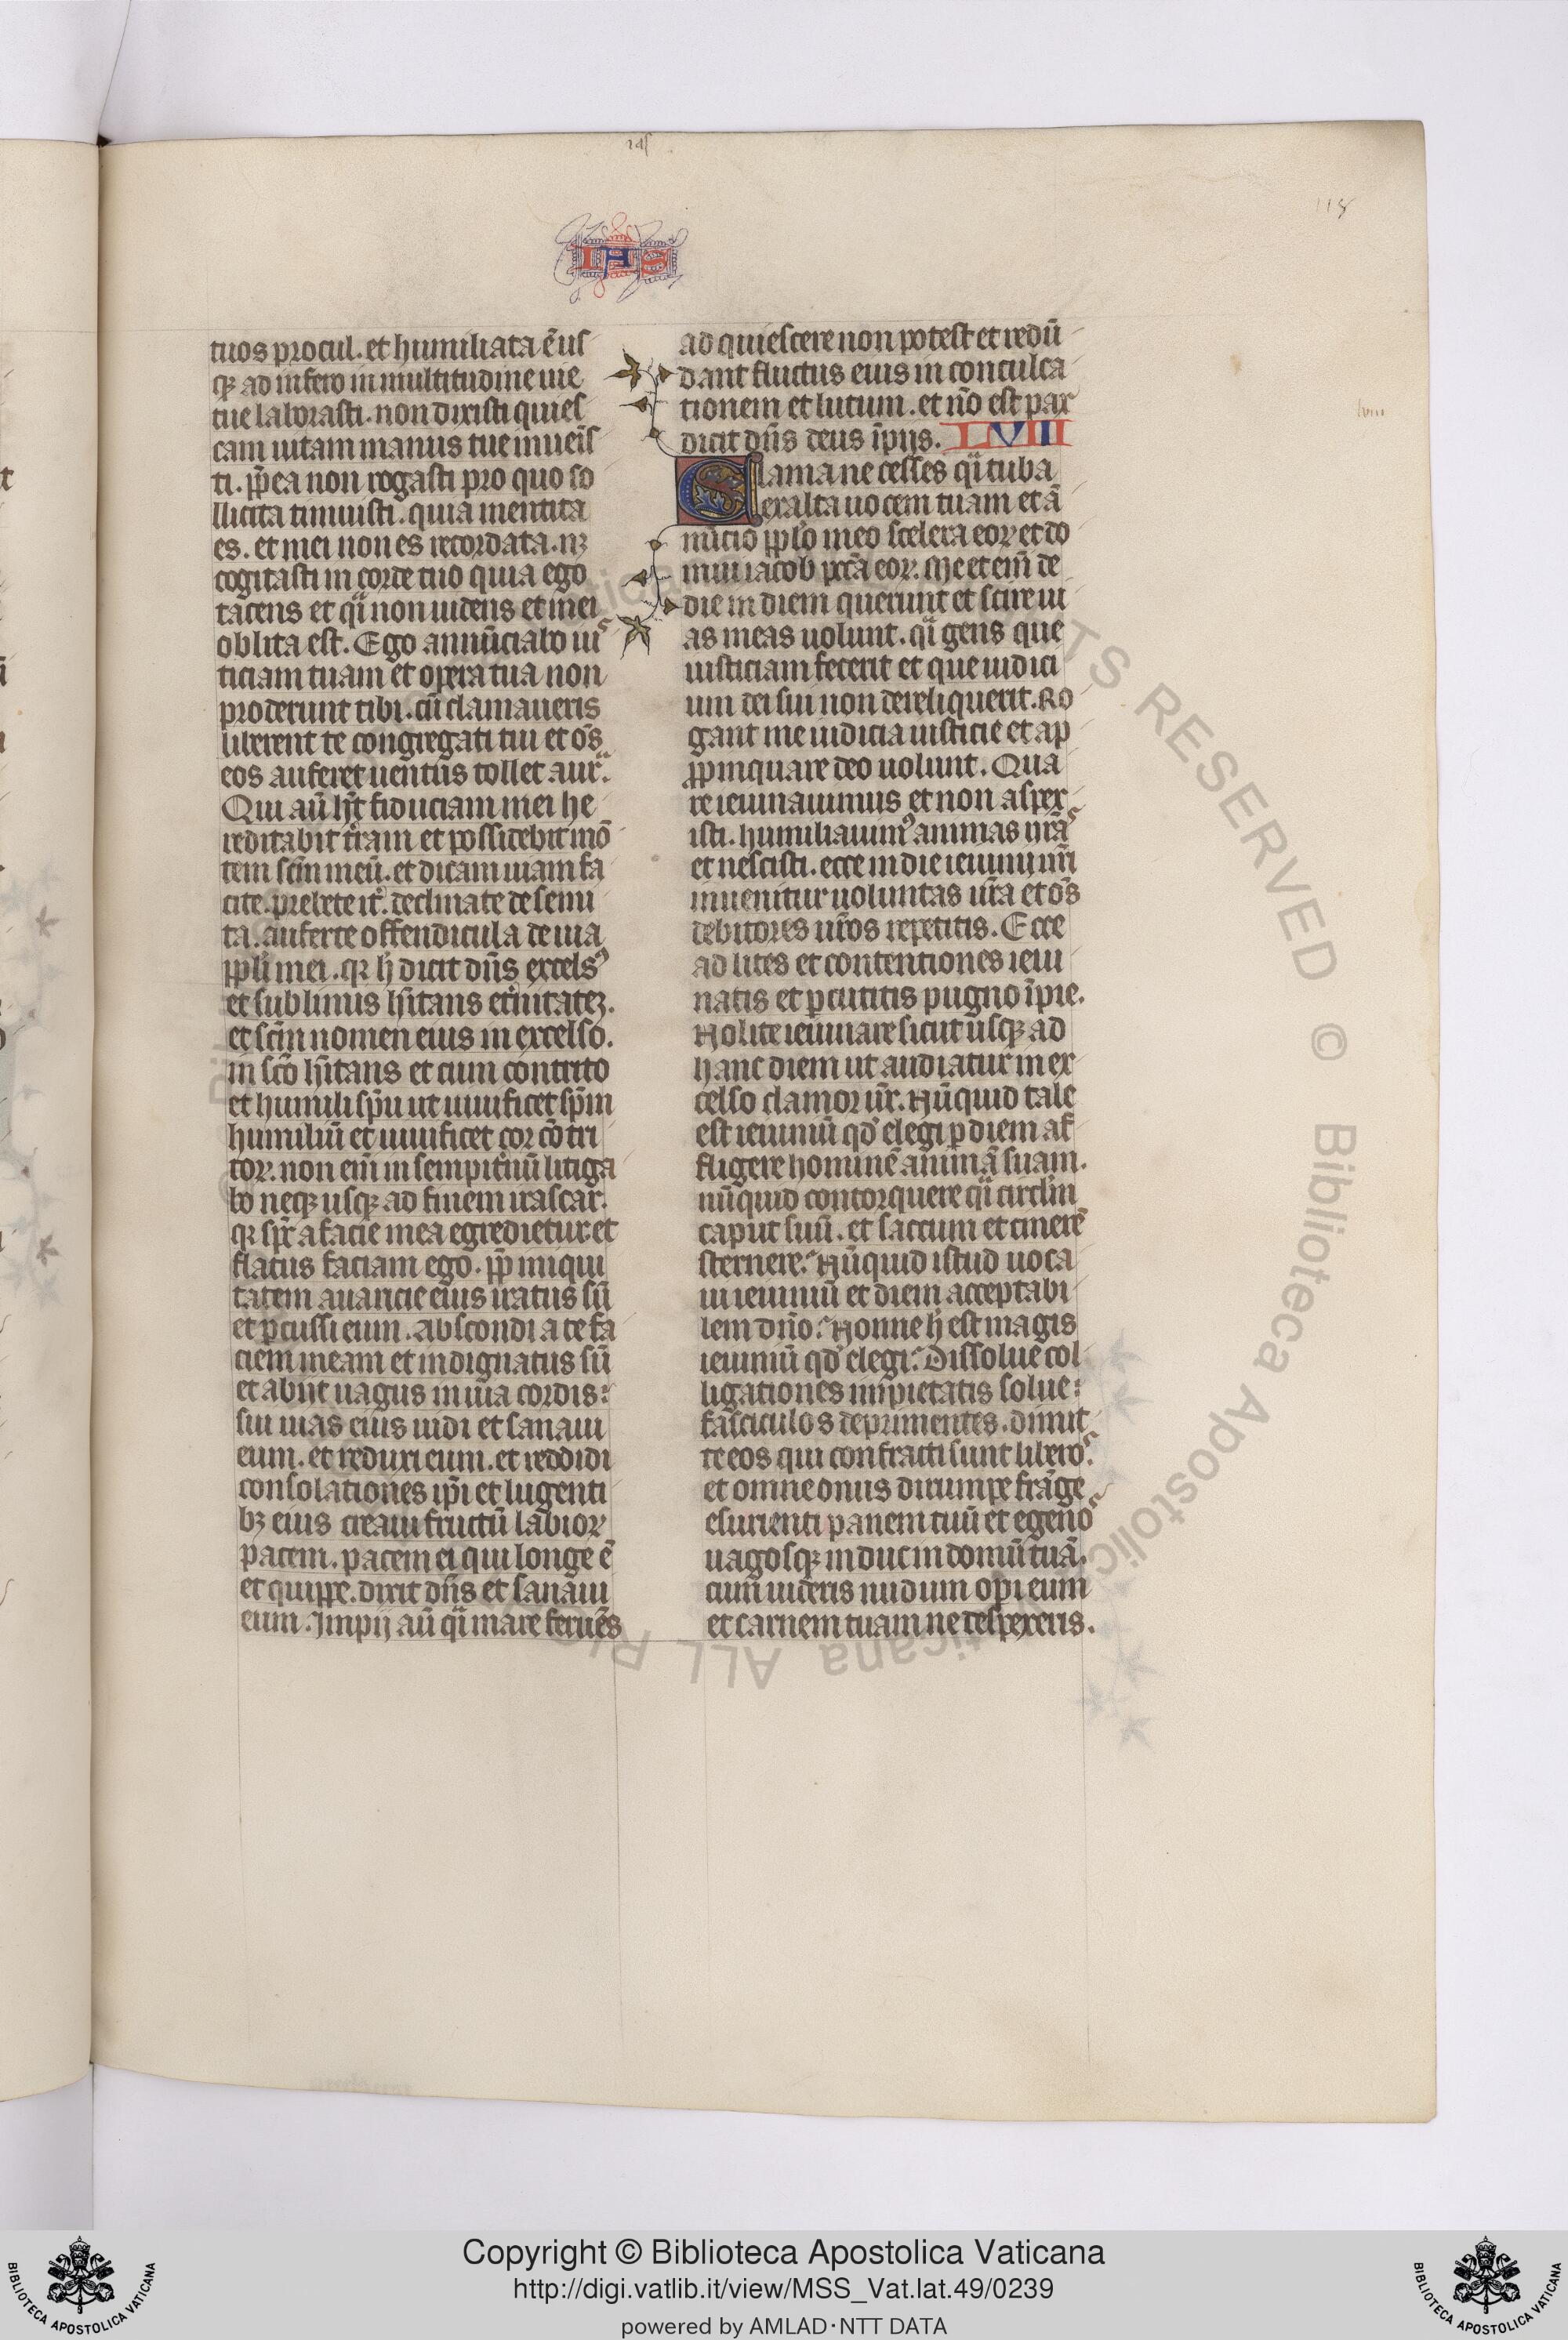 245
118
IHS
tuos procul. et humiliata ē us
qꝫ ad infero in multitudine uie
tue laborasti. non dixisti quies
cam uitam manus tue inueīs
ti. ꝓpea non rogasti pro quo so
llicita timuisti. quia mentita
es. et mei non es recordata. nꝫ
cogitasti in corde tuo quia ego
tacens et qͣi non uidens et mei
oblita est. Ego annūciabo ius
ticiam tuam et opera tua non
proderunt tibi. cū clamaueris
liberent te congregati tui et oēs
eos auferet uentus tollet aurͣ.
Qui aū hn̄t fiduciam mei he
reditabit tr̄am et possidebit mō
tem sc̄m meū. et dicam uiam fa
cite. prebete itͬ. declinate de semi
ta. auferte offendicula de uia
ppl̄i mei. qꝛ h̄ dicit dn̄s excelsꝰ
et sublimis hītans et̄nitateꝫ.
et sc̄m nomen eius in excelso.
in sc̄o hītans et cum contrito
et humili sp̄u ut uiuificet sp̄m
humiliū et uiuificet cor cōtri
toꝝ. non eīm in sempit̄nū litiga
bo neqꝫ usqꝫ ad finem irascar.
qꝛ spc̄ a facie mea egredietur et
flatus faciam ego. ꝓp iniqui
tatem auaricie eius iratus sū
et ꝑcussi eum. Abscondi a te fa
ciem meam et indignatus sū
et abijt uagus in uia cordis
sui uias eius uidi et sanaui
eum. et reduxi eum. et reddidi
consolationes ip̄i et lugenti
bꝫ eius creaui fructū labioꝝ
pacem. pacem ei qui longe ē
et qui ꝓpe. dixit dn̄s et sanaui
eum. Impij aū qͣi mare feruēs
ad quiescere non potest et redū
dant fluctus eius in conculca
tionem et lutum. et nō est pax
dicit dn̄s deus īpijs. LVIII
lviii
Clama ne cesses qͣi tuba
exalta uocem tuam et ā
nūcio ppl̄o meo scelera eoꝝ et do
mui iacob pctā eoꝝ. Me et eīm de
die in diem querunt et scire ui
as meas uolunt. qͣi gens que
iusticiam fecerit et que iudici
um dei sui non dereliquerit. Ro
gant me iudicia iusticie et ap
ꝓpinquare deo uolunt. Qua
re ieiunauimus et non aspex
isti. humiliauimꝰ animas nr̄as
et nescisti. ecce in die ieiunij nr̄i
inuenitur uoluntas ur̄a et oēs
debitores ur̄os repetitis. Ecce
ad lites et contentiones ieiu
natis et ꝑcutitis pugno īpie.
Nolite ieiunare sicut usqꝫ ad
hanc diem ut audiatur in ex
celso clamor ur̄. Nūquid tale
est ieiuniū qd̓ elegi ꝑ diem af
fligere hominē animā suam.
nūquid contorquere qͣi circl̄m
caput suū. et saccum et cinerē
sternere. Nūquid istud uoca
ui ieiuniū et diem acceptabi
lem dn̄o. Nonne h̄ est magis
ieiuniū qd̓ elegi. Dissolue col
ligationes impietatis solue
fasciculos deprimentes. dimit
te eos qui confracti sunt liberos.
et omne onus dirumpe frange
esurienti panem tuū et egenos
uagosqꝫ induc in domū tuā.
cum uideris nudum oꝑi eum
et carnem tuam ne despexeris.
Copyright © Biblioteca Apostolica Vaticana
http://digi.vatlib.it/view/MSS_Vat.lat.49/0239
powered by AMLAD·NTT DATA
BIBLIOTECA APOSTOLICA VATICANA
BIBLIOTECA APOSTOLICA VATICANA